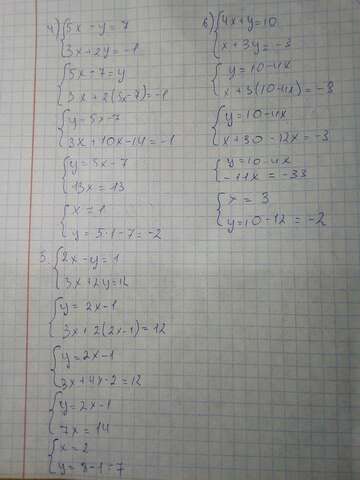 4) 5x - y = 7
3x + 2y = -1
5x - 7 = y
3x + 2(5x - 7) = -1
y = 5x - 7
3x + 10x - 14 = -1
y = 5x - 7
13x = 13
x = 1
y = 5·1 - 7 = -2
5. 2x - y = 1
3x + 2y = 12
y = 2x - 1
3x + 2(2x - 1) = 12
y = 2x - 1
3x + 4x - 2 = 12
y = 2x - 1
7x = 14
x = 2
y = 8 - 1 = 7
6) 4x + y = 10
x + 3y = -3
y = 10 - 4x
x + 3(10 - 4x) = -3
y = 10 - 4x
x + 30 - 12x = -3
y = 10 - 4x
-11x = -33
x = 3
y = 10 - 12 = -2